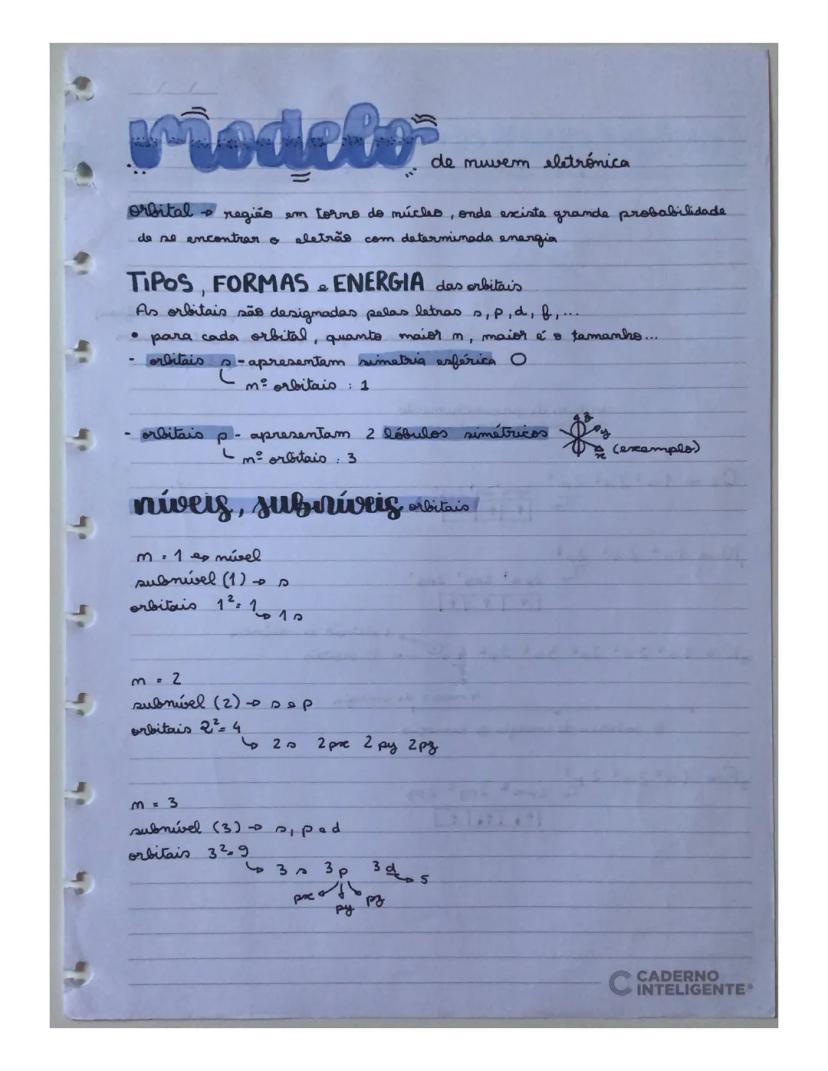 Modelo de nuvem eletrónica
orbital → região em torno do núcleo, onde existe grande probabilidade
de se encontrar o eletrão com determinada energia
TIPOS, FORMAS e ENERGIA das orbitais
As orbitais são designadas pelas letras s, p, d, f, ...
• para cada orbital, quanto maior n, maior é o tamanho...
- orbitais s - apresentam simetria esférica
nº orbitais : 1
- orbitais p - apresentam 2 lóbulos simétricos z py x (exemplo)
nº orbitais : 3
níveis, subníveis orbitais
n = 1 → nível
subnível (1) → s
orbitais 1² = 1
↳ 1s
n = 2
subnível (2) → s e p
orbitais 2² = 4
↳ 2s 2px 2py 2pz
n = 3
subnível (3) → s, p e d
orbitais 3² = 9
↳ 3s 3p 3d → 5
px py pz
CADERNO
INTELIGENTE®